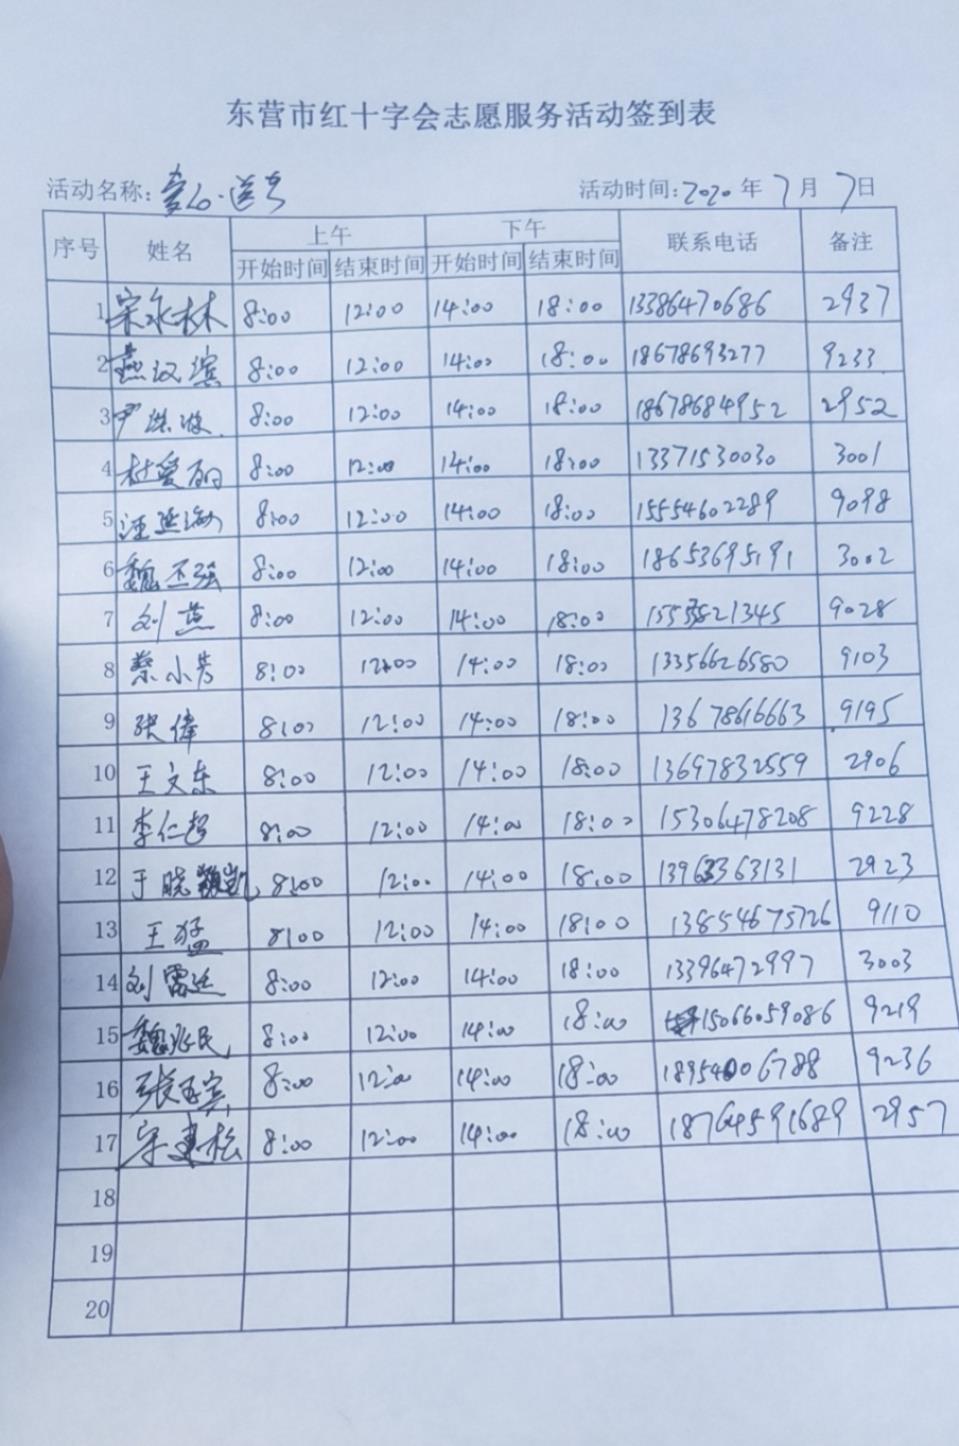 东营市红十字会志愿服务活动签到表
活动名称: 爱心送考 活动时间: 2020 年 7 月 7 日
序号 姓名 上午 下午 联系电话 备注
开始时间 结束时间 开始时间 结束时间
1 宋永林 8:00 12:00 14:00 18:00 13386470686 2937
2 燕汉滨 8:00 12:00 14:00 18:00 18678693277 9233
3 尹洪波 8:00 12:00 14:00 18:00 18678684952 2952
4 杜爱丽 8:00 12:00 14:00 18:00 13371530030 3001
5 汪延海 8:00 12:00 14:00 18:00 15554602289 9098
6 魏丕强 8:00 12:00 14:00 18:00 18653695191 3002
7 刘燕 8:00 12:00 14:00 18:00 9028
8 蔡小芳 8:00 12:00 14:00 18:00 13356626580 9103
9 张伟 8:00 12:00 14:00 18:00 13678616663 9195
10 王文东 8:00 12:00 14:00 18:00 13697832559 2906
11 李仁超 8:00 12:00 14:00 18:00 15306478208 9228
12 于晓凯 8:00 12:00 14:00 18:00 13963363131 2923
13 王猛 8:00 12:00 14:00 18:00 13854675726 9110
14 刘雷廷 8:00 12:00 14:00 18:00 13396472997 3003
15 魏兆民 8:00 12:00 14:00 18:00 15066059086 9219
16 张玉宾 8:00 12:00 14:00 18:00 18954006788 9236
17 宋建松 8:00 12:00 14:00 18:00 18764591689 2957
18
19
20